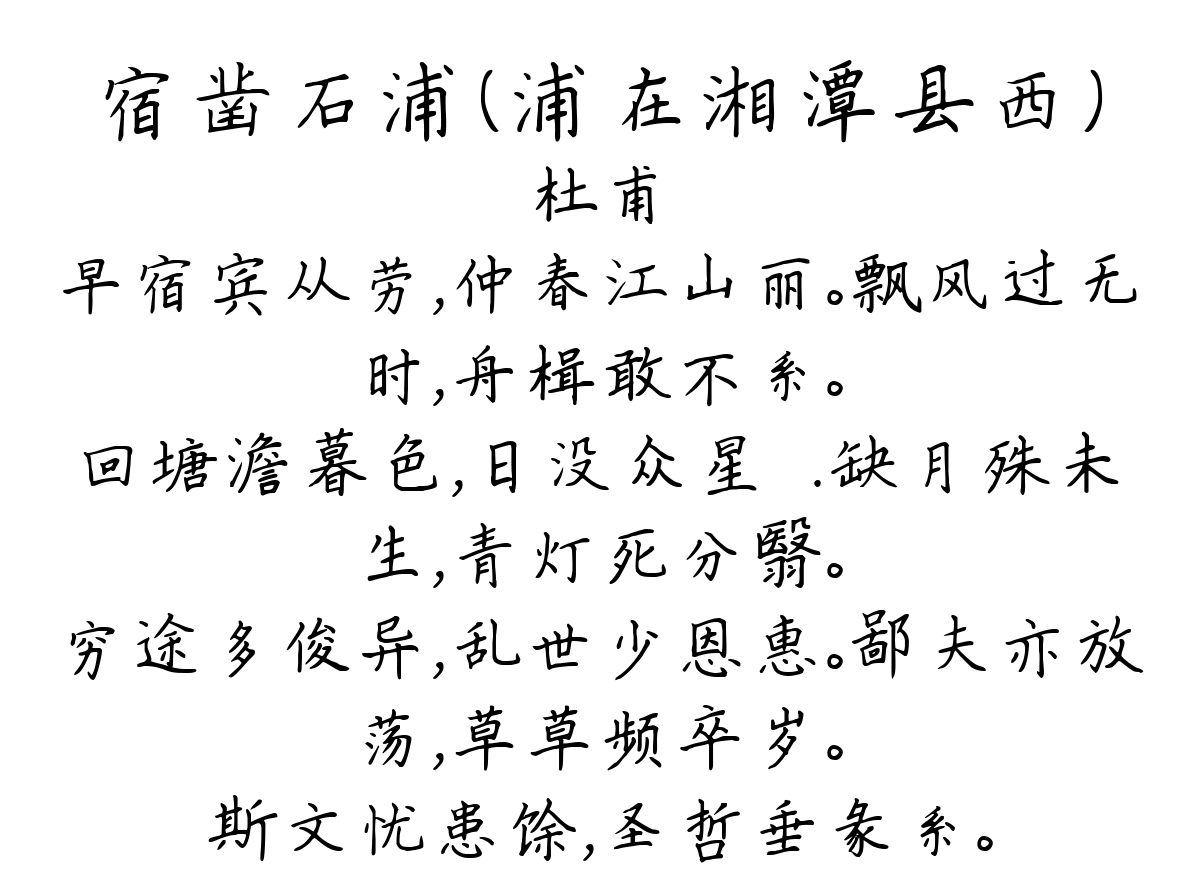 宿凿石浦(浦在湘潭县西)
杜甫
早宿宾从劳,仲春江山丽。飘风过无
时,舟楫敢不系。
回塘澹暮色,日没众星 .缺月殊未
生,青灯死分翳。
穷途多俊异,乱世少恩惠。鄙夫亦放
荡,草草频卒岁。
斯文忧患馀,圣哲垂彖系。